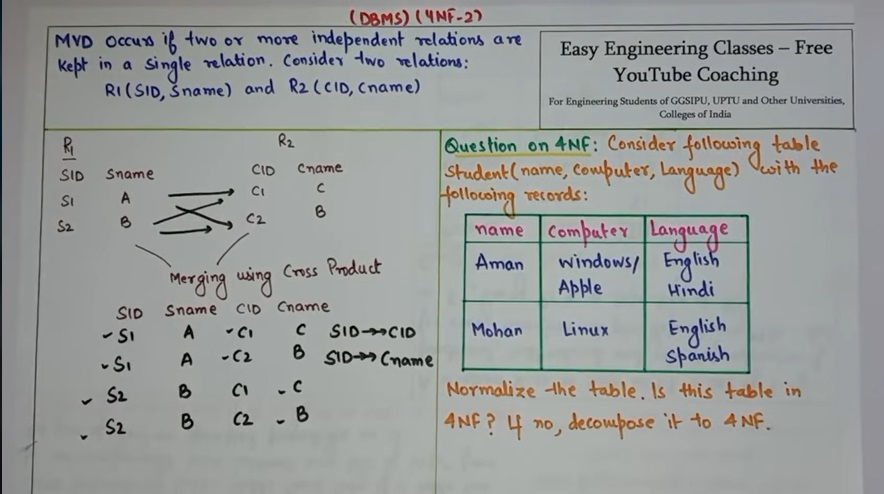 (DBMS) (4NF-2)
MVD occurs if two or more independent relations are
kept in a single relation. Consider two relations:
R1(SID, Sname) and R2(CID, Cname)
Easy Engineering Classes – Free
YouTube Coaching
For Engineering Students of GGSIPU, UPTU and Other Universities,
Colleges of India
R1 R2
SID Sname CID Cname
S1 A C1 C
S2 B C2 B
Merging using Cross Product
SID Sname CID Cname
S1 A C1 C SID→→CID
S1 A C2 B SID→→Cname
S2 B C1 C
S2 B C2 B
Question on 4NF: Consider following table
Student(name, Computer, Language) with the
following records:
name Computer Language
Aman windows/ English
Apple Hindi
Mohan Linux English
Spanish
Normalize the table. Is this table in
4NF? If no, decompose it to 4NF.